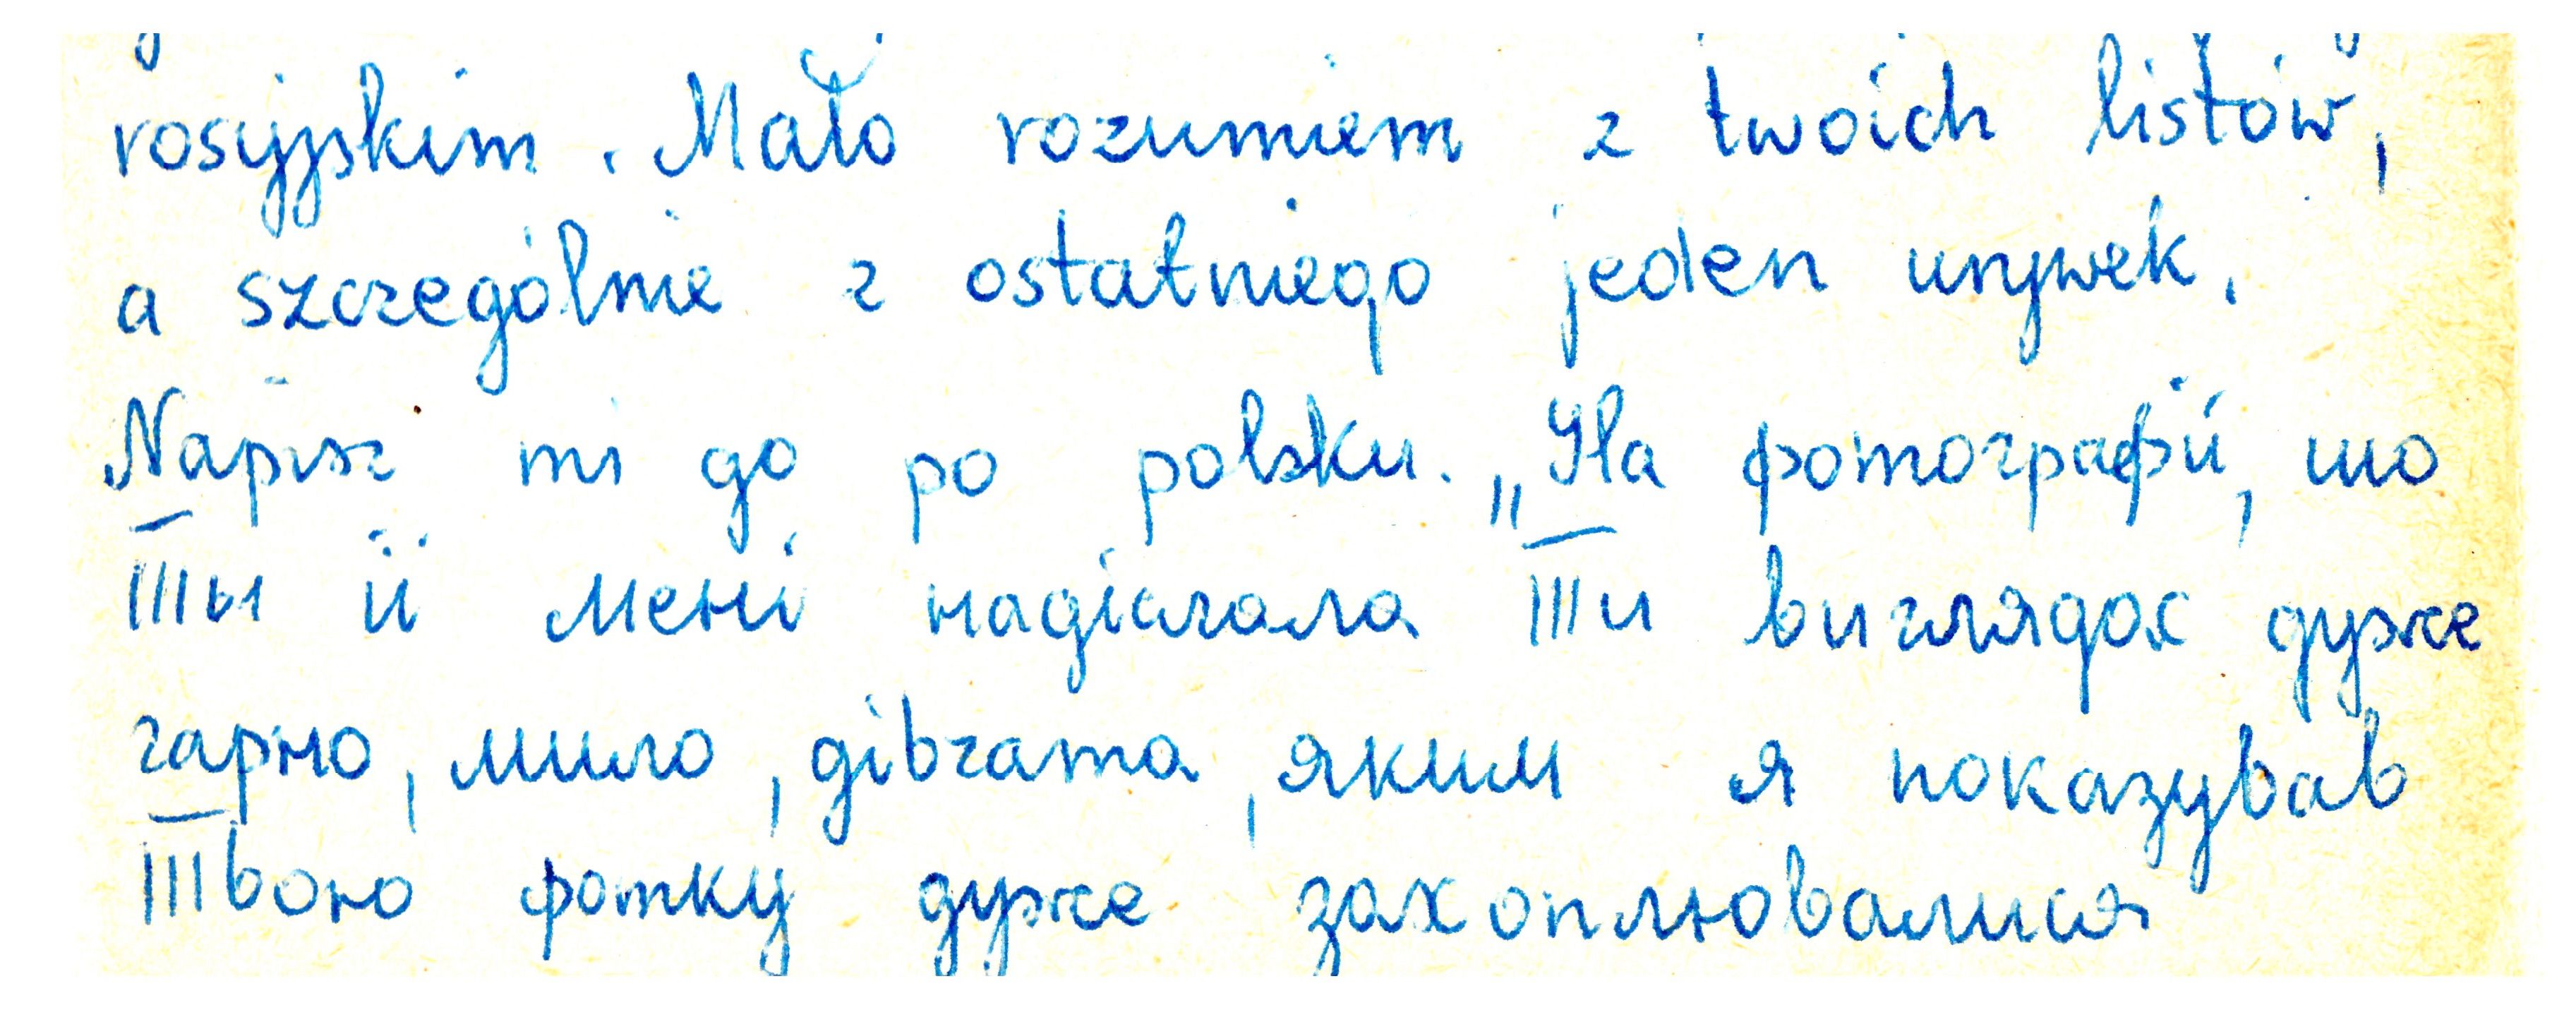 rosyjskim. Mało rozumiem z twoich listów,
a szczególnie z ostatniego jeden urywek.
Napisz mi go po polsku. „На фотографії, шо
Ты її мені надіслала Ти виглядах дуже
гарно, мило, дівчата, яким я показував
Твою фотку дуже захоплювалися